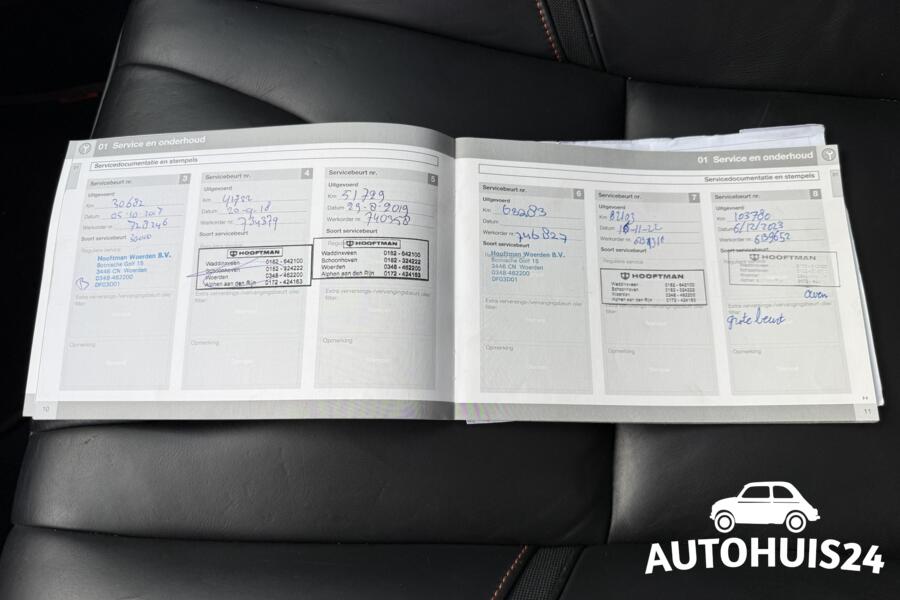 01 Service en onderhoud
Servicedocumentatie en stempels
Servicebeurt nr. 3
Uitgevoerd
Km 30682
Datum 05-10-2017
Werkorder nr. 728246
Soort servicebeurt 30000
Reguliere service
Hooftman Woerden B.V.
Botnische Golf 15
3446 CN Woerden
0348-462200
DF03D01
Extra verversings-/vervangingsbeurt olie/
filter:
Opmerking
10
Servicebeurt nr. 4
Uitgevoerd
Km 41732
Datum 20-9-18
Werkorder nr. 734379
Soort servicebeurt
HOOFTMAN
Waddinxveen 0182 - 642100
Schoonhoven 0182 - 324222
Woerden 0348 - 462200
Alphen aan den Rijn 0172 - 424163
Extra verversings-/vervangingsbeurt olie/
filter:
Opmerking
Servicebeurt nr. 5
Uitgevoerd
Km 51729
Datum 29-8-2019
Werkorder nr. 740358
Soort servicebeurt
HOOFTMAN
Waddinxveen 0182 - 642100
Schoonhoven 0182 - 324222
Woerden 0348 - 462200
Alphen aan den Rijn 0172 - 424163
Extra verversings-/vervangingsbeurt olie/
filter:
Opmerking
01 Service en onderhoud
Servicedocumentatie en stempels
Servicebeurt nr. 6
Uitgevoerd
Km 62083
Datum
Werkorder nr. 746827
Soort servicebeurt
Hooftman Woerden B.V.
Botnische Golf 15
3446 CN Woerden
0348-462200
DF03D01
Extra verversings-/vervangingsbeurt olie/
filter:
Opmerking
Servicebeurt nr. 7
Uitgevoerd
Km 82103
Datum
Werkorder nr.
Soort servicebeurt
Reguliere service
HOOFTMAN
Waddinxveen 0182 - 642100
Schoonhoven 0182 - 324222
Woerden 0348 - 462200
Alphen aan den Rijn 0172 - 424163
Extra verversings-/vervangingsbeurt olie/
filter:
Opmerking
Servicebeurt nr. 8
Uitgevoerd
Km 103780
Datum 6/12/2023
Werkorder nr. 639652
Soort servicebeurt
HOOFTMAN
Extra verversings-/vervangingsbeurt olie/
filter:
grote beurt
Opmerking
11
AUTOHUIS24